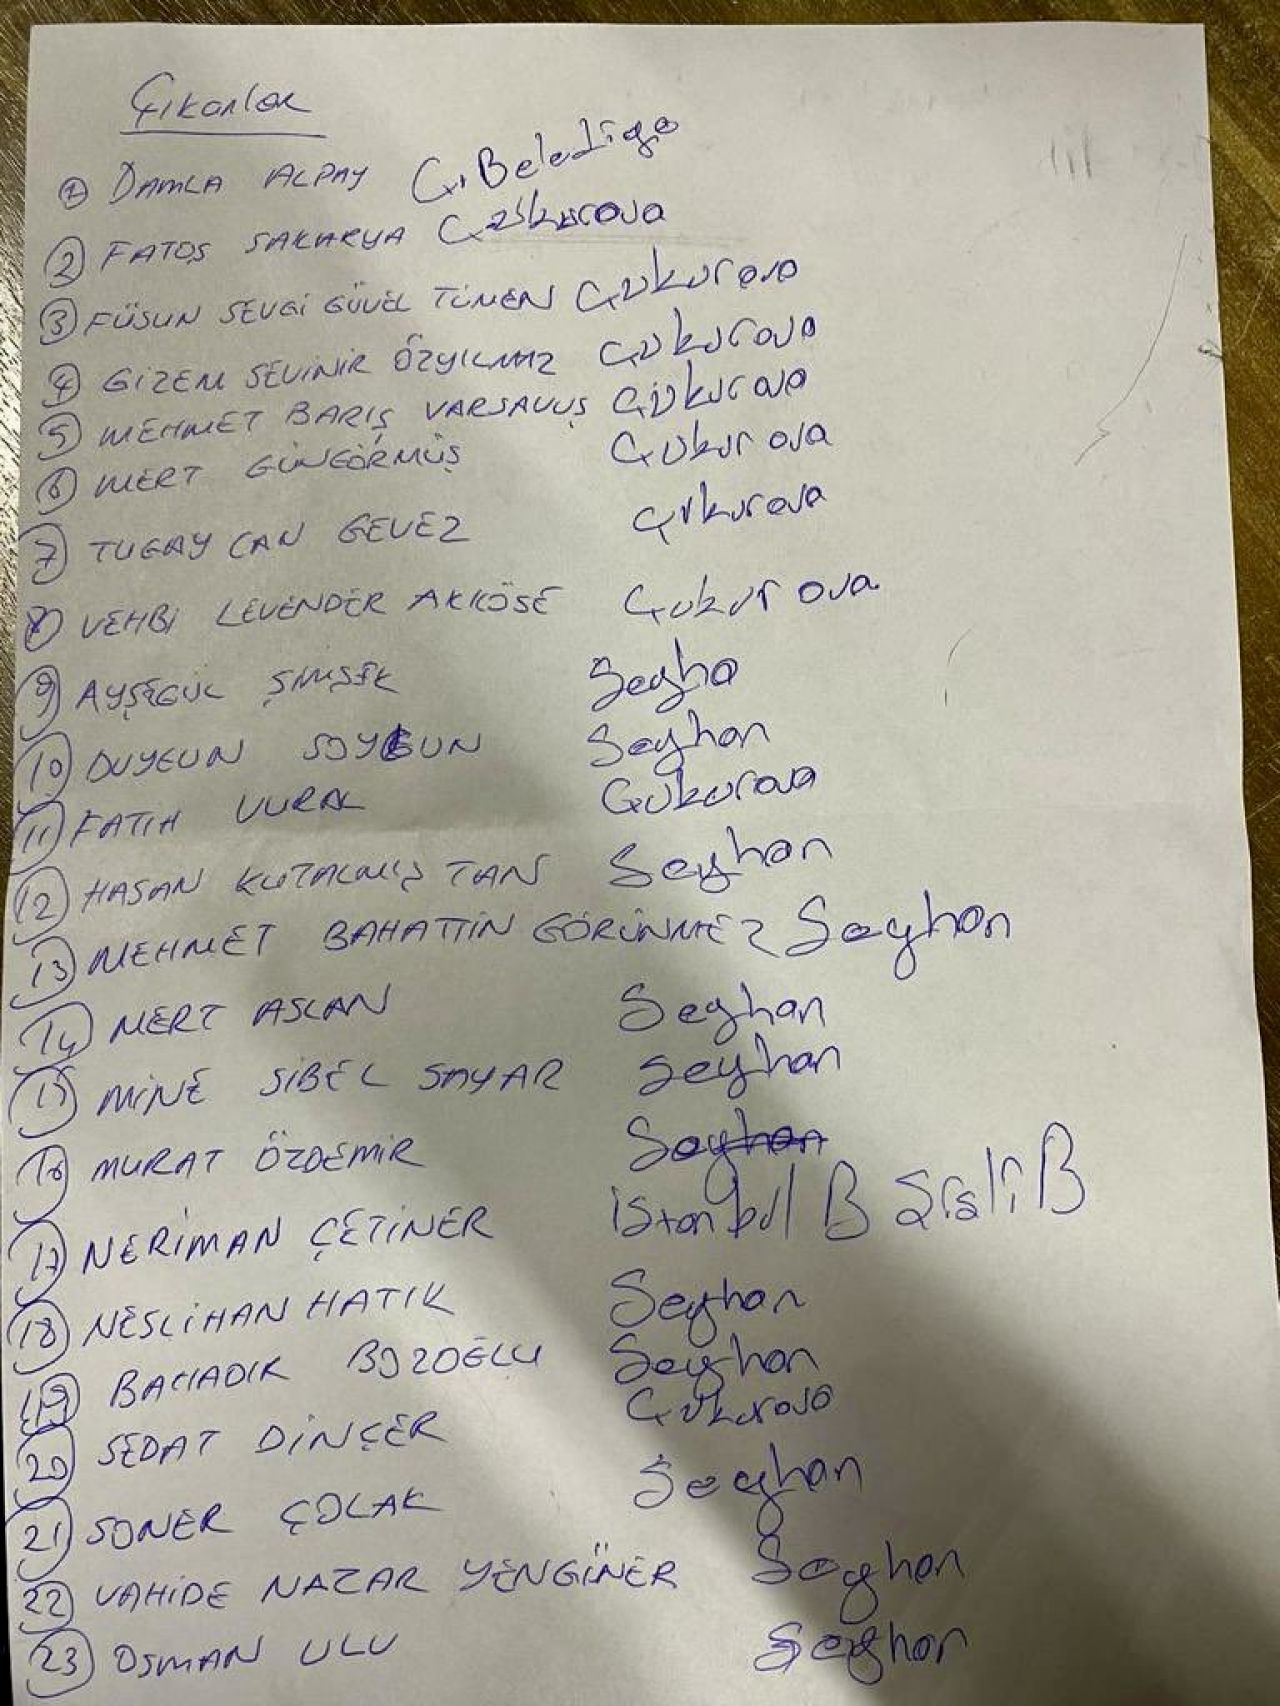 Çıkanlar
1 DAMLA ALPAY Ç. Belediye
2 FATOŞ SAKARYA Çukurova
3 FÜSUN SEVGİ GÜVEL TÜMEN Çukurova
4 GİZEM SEVİNİR ÖZYILMAZ Çukurova
5 MEHMET BARIŞ VARSAVUŞ Çukurova
6 MERT GÜNGÖRMÜŞ Çukurova
7 TUGAY CAN GEVEZ Çukurova
8 VEHBİ LEVENDER AKKÖSE Çukurova
9 AYŞEGÜL ŞİMŞEK Seyha
10 DUYGUN SOYGUN Seyhan
11 FATİH VURAL Çukurova
12 HASAN KUTALMIŞ TAN Seyhan
13 MEHMET BAHATTİN GÖRÜNMEZ Seyhan
14 MERT ASLAN Seyhan
15 MİNE SİBEL SAYAR Seyhan
16 MURAT ÖZDEMİR Seyhan
17 NERİMAN ÇETİNER İstanbul B Şişli B
18 NESLİHAN HATIK Seyhan
19 BAHADIR BOZOĞLU Seyhan
20 SEDAT DİNÇER Çukurova
21 SONER ÇOLAK Seyhan
22 VAHİDE NAZAR YENGİNER Seyhan
23 OSMAN ULU Seyhan